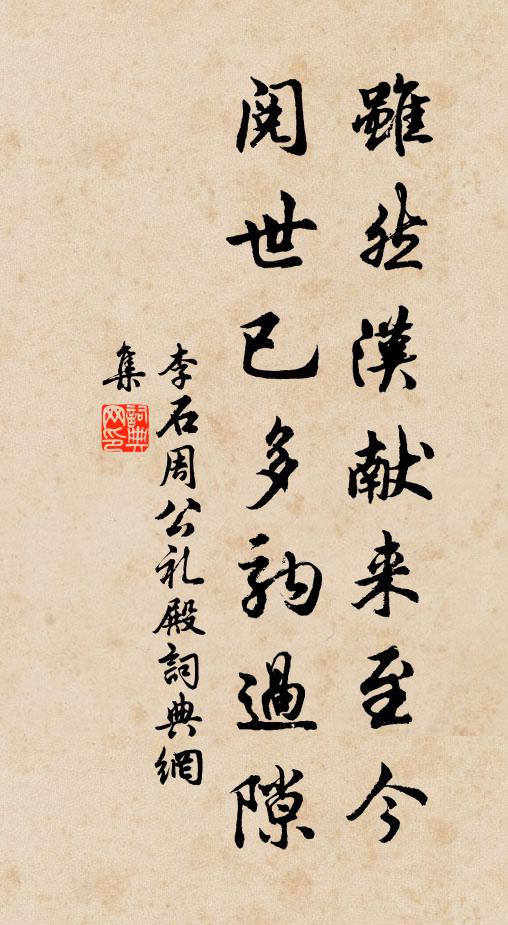 雖然漢献来至今
閱世已多駒過隙
李石周公礼殿詞典網
集
詞典网印